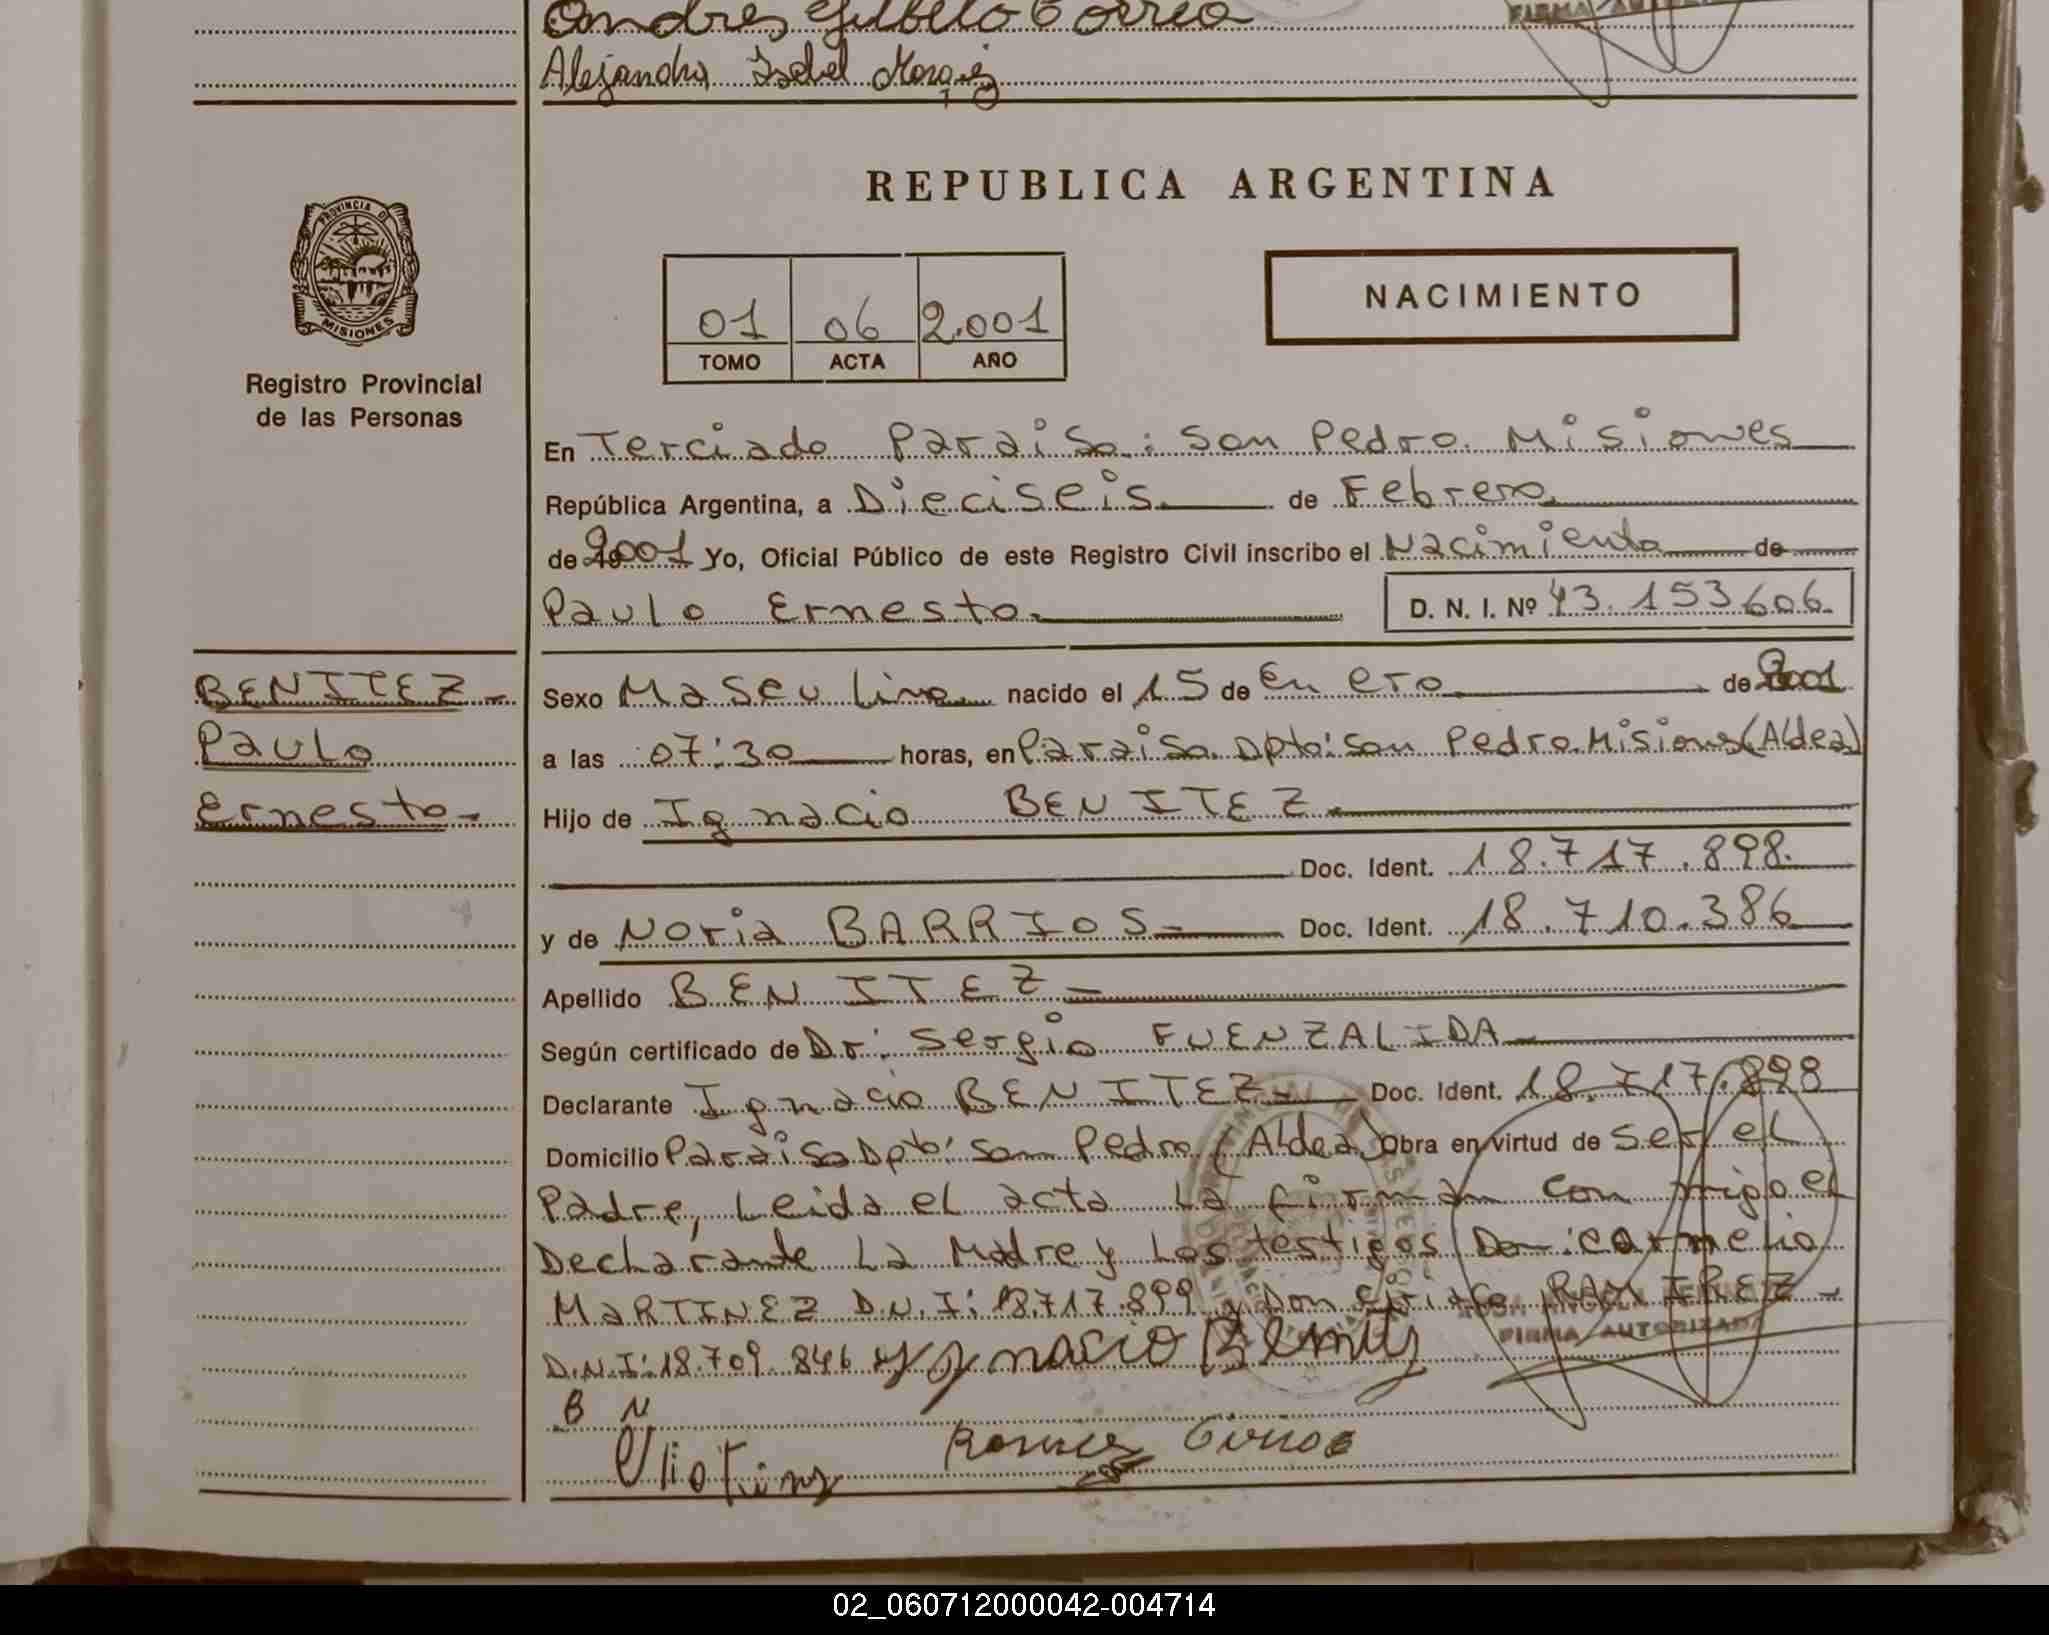 Andres Gilberto Correa
FIRMA AUTORIZADA
Alejandra Isabel
REPUBLICA ARGENTINA
PROVINCIA DE
MISIONES
NACIMIENTO
01 06 2.001
TOMO ACTA AÑO
Registro Provincial
de las Personas
En Terciado Paraiso: San Pedro. Misiones
República Argentina, a Dieciseis de Febrero
de 2001 Yo, Oficial Público de este Registro Civil inscribo el Nacimiento de
Paulo Ernesto. D. N. I. Nº 43.153606.
BENITEZ-
Paulo
Ernesto-
Sexo Masculino nacido el 15 de Enero de 2001
a las 07:30 horas, en Paraiso. Dpto: San Pedro. Misiones (Aldea)
Hijo de Ignacio BENITEZ
Doc. Ident. 18.717.898.
y de Noria BARRIOS- Doc. Ident. 18.710.386
Apellido BENITEZ-
Según certificado de Dr: Sergio FUENZALIDA
Declarante Ignacio BENITEZ- Doc. Ident. 18.717.898
Domicilio Paraiso Dpto: San Pedro (Aldea) Obra en virtud de ser el
Padre, Leida el acta La firman con migo el
Declarante La Madre y Los testigos Don: Carmelio
MARTINEZ D.N.I: 18.717.899 y Don Ciriaco RAMIREZ-
FIRMA AUTORIZADA
D.N.I: 18.709.846 Ygnacio Benitez
B N
02_060712000042-004714